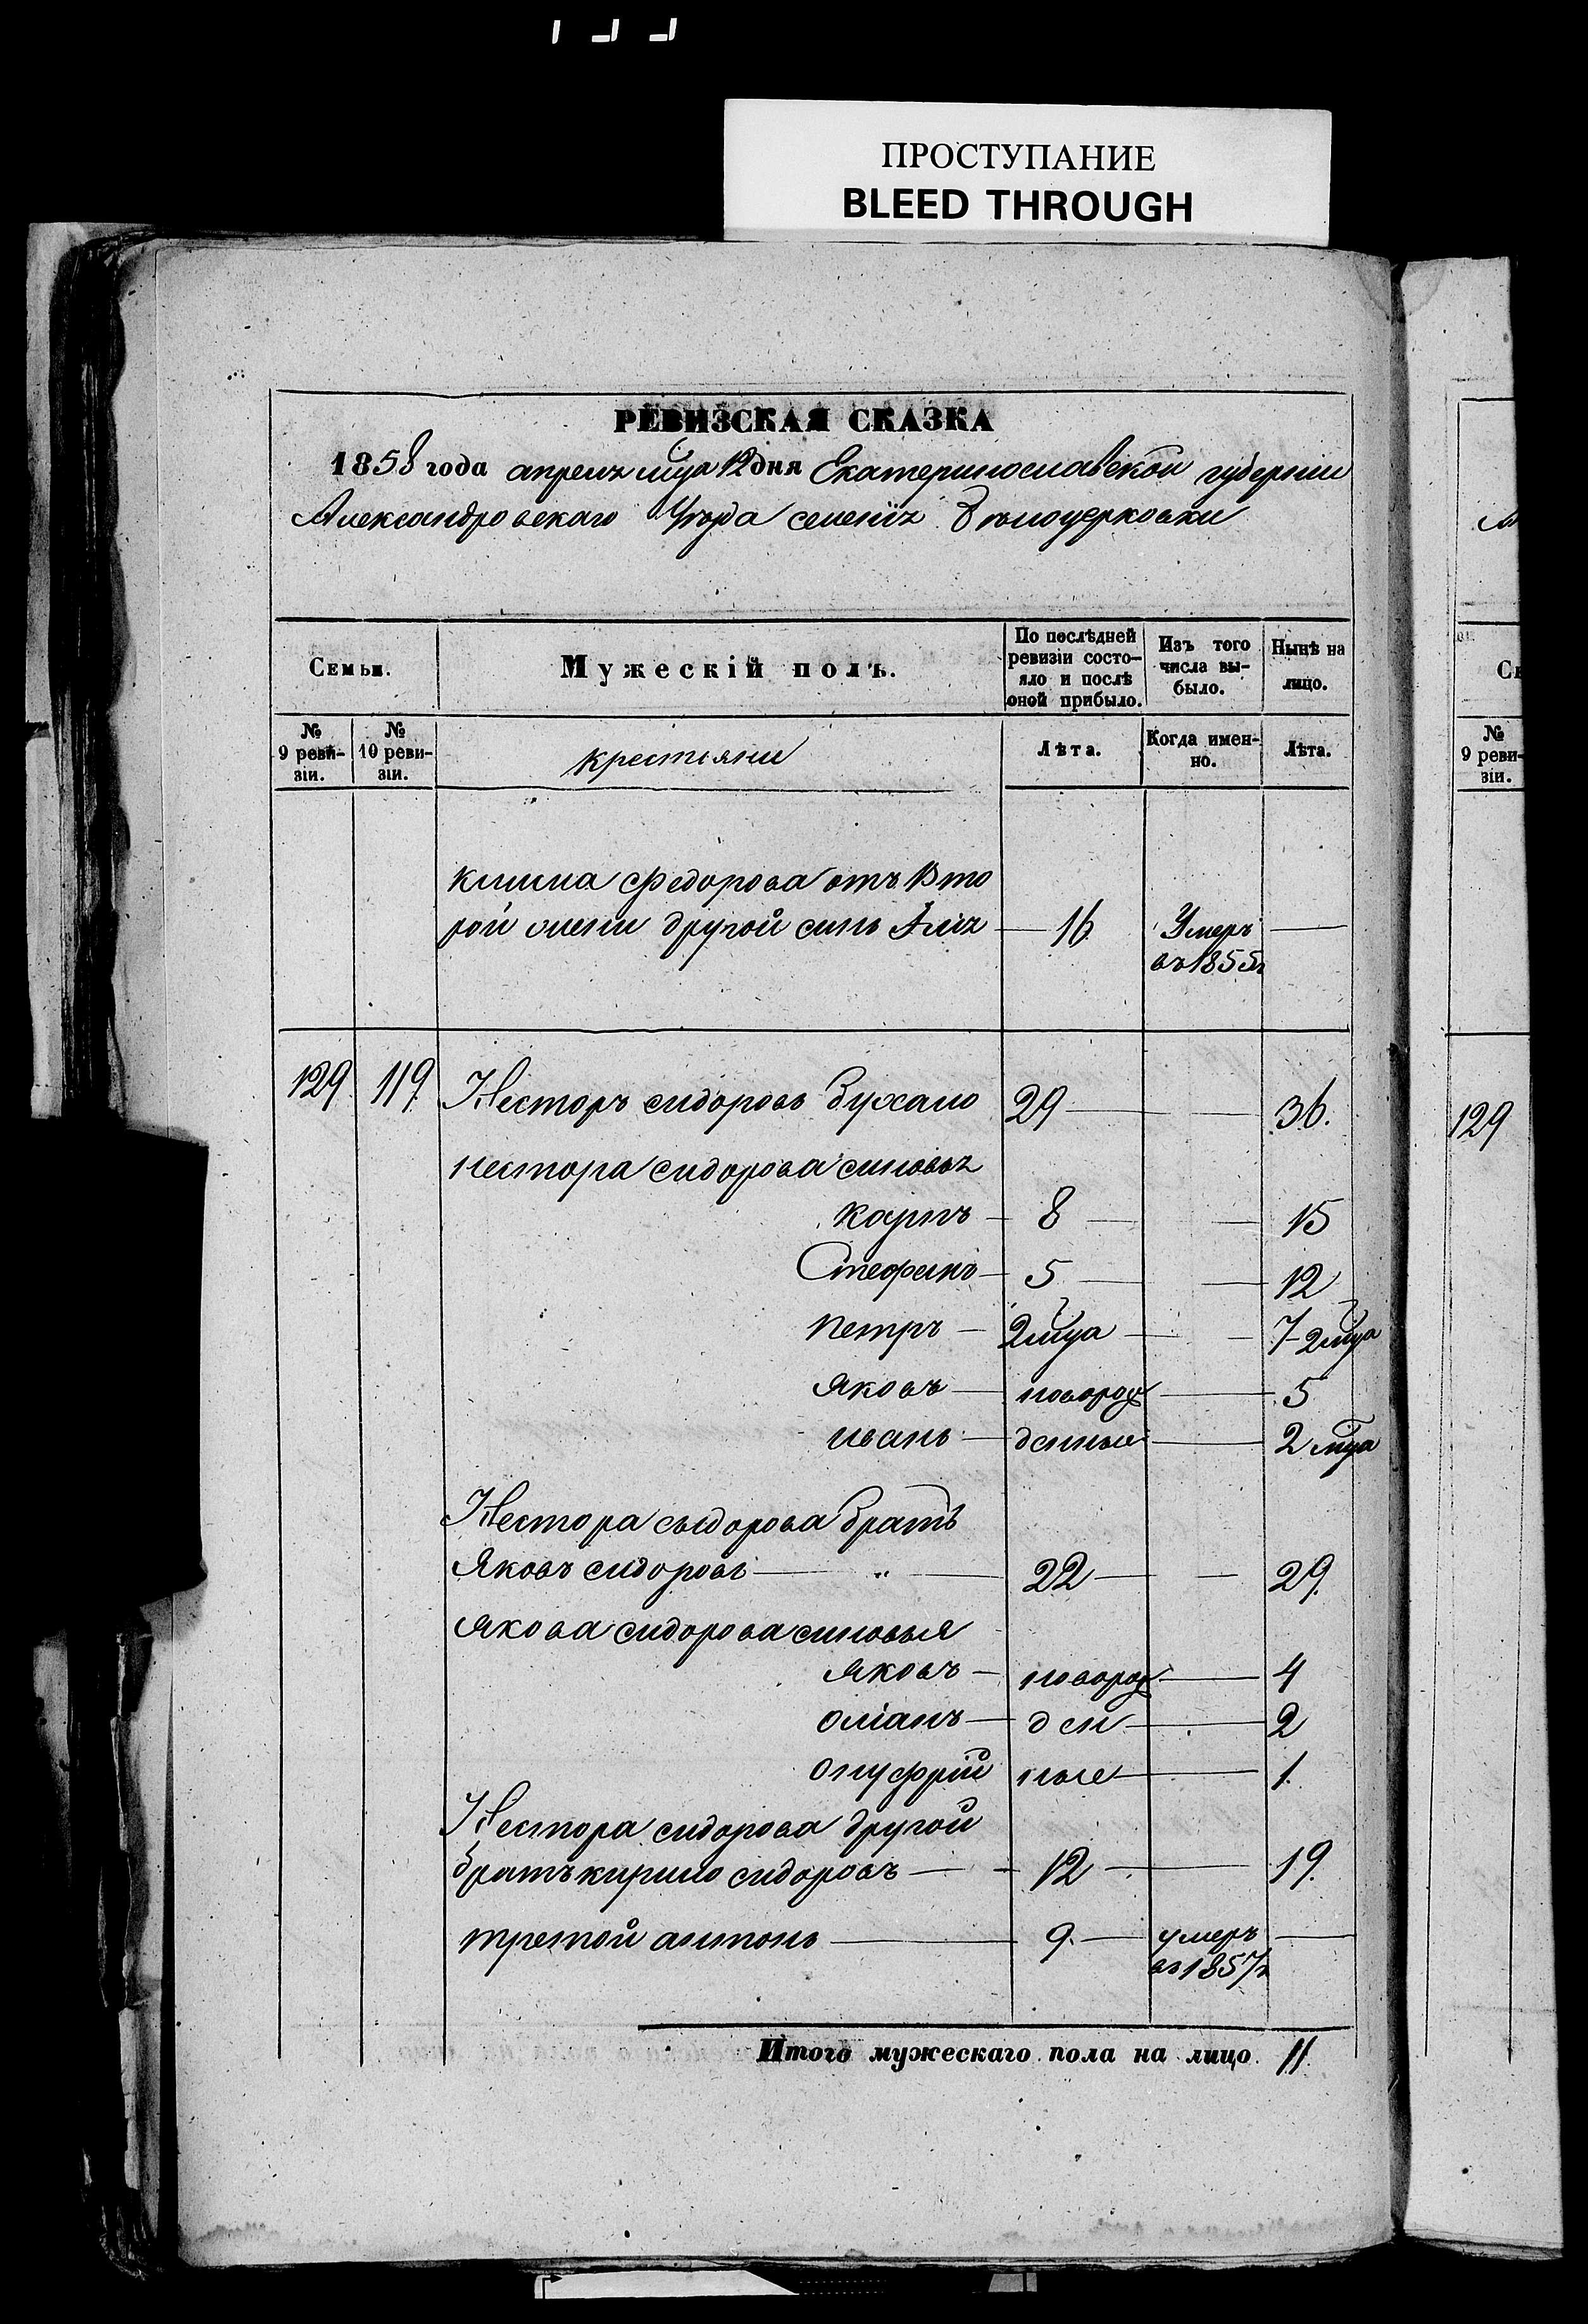 ПРОСТУПАНИЕ
BLEED THROUGH
РЕВИЗСКАЯ СКАЗКА
1858 года апреля мца 12 дня Екатеринославской губерніи
Александровскаго Уѣзда селенія Бѣлоцерковки
Семьи.
Мужескій полъ.
По послѣдней ревизіи состо-яло и послѣ оной прибыло.
Изъ того числа вы-было.
Нынѣ на лицо.
№ 9 реви-зіи.
№ 10 реви-зіи.
крестьяне
Лѣта.
Когда имен-но.
Лѣта.
клима федорова отъ Вто
рой жени другой синъ — 16 Умеръ —
въ 1855г
129 119 Несторъ сидоровъ Бухало 29 — — 36.
нестора сидорова синовья
карпъ — 8 — — 15
Стефанъ — 5 — — 12
петръ — 2 мца — — 7-2 мца
яковъ — новорож — 5
иванъ — денные — 2 мца
Нестора сыдорова братъ
Яковъ сидоровъ — " — 22 — — 29.
якова сидорова синовья
яковъ — новорож — 4
оліанъ — ден — 2
онуфрій ные — 1.
Нестора сидорова другой
братъ кирило сидоровъ — — 12 — — 19.
третой антонъ — 9. — умеръ —
въ 1857г
Итого мужескаго пола на лицо. 11.
№ 9 реви-зіи.
129